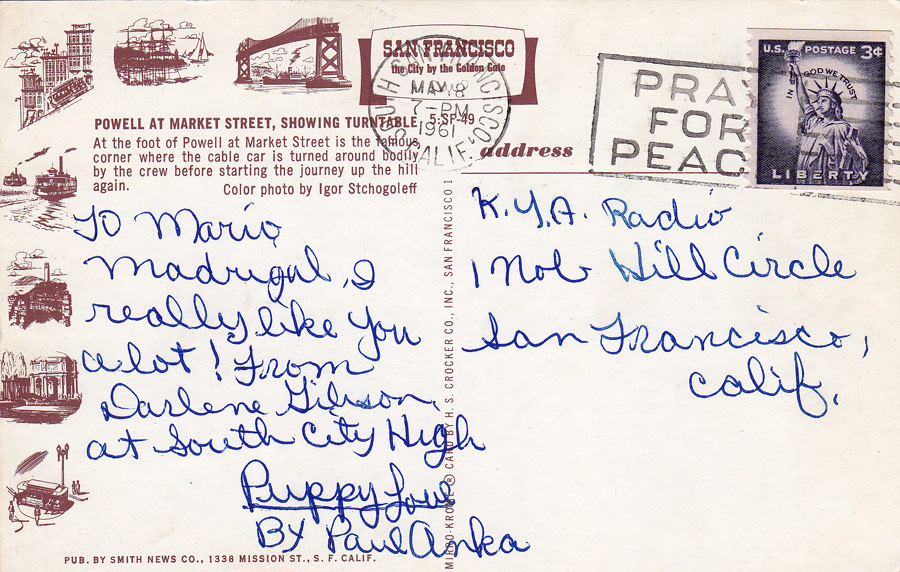 SAN FRANCISCO
the City by the Golden Gate
SOUTH SAN FRANCISCO
MAY 8
7-PM
1961
CALIF.
PRAY
FOR
PEACE
U.S. POSTAGE 3¢
IN GOD WE TRUST
LIBERTY
POWELL AT MARKET STREET, SHOWING TURNTABLE 5:SF-49
At the foot of Powell at Market Street is the famous
corner where the cable car is turned around bodily
by the crew before starting the journey up the hill
again. Color photo by Igor Stchogoleff
address
To Mario
Madrigal, I
really like you
alot! From
Darlene Gibson,
at South City High
Puppy Love
By Paul Anka
K.Y.A. Radio
1 Nob Hill Circle
San Francisco,
Calif.
MIRRO-KROME ® CARD BY H. S. CROCKER CO., INC., SAN FRANCISCO 1
PUB. BY SMITH NEWS CO., 1338 MISSION ST., S. F. CALIF.